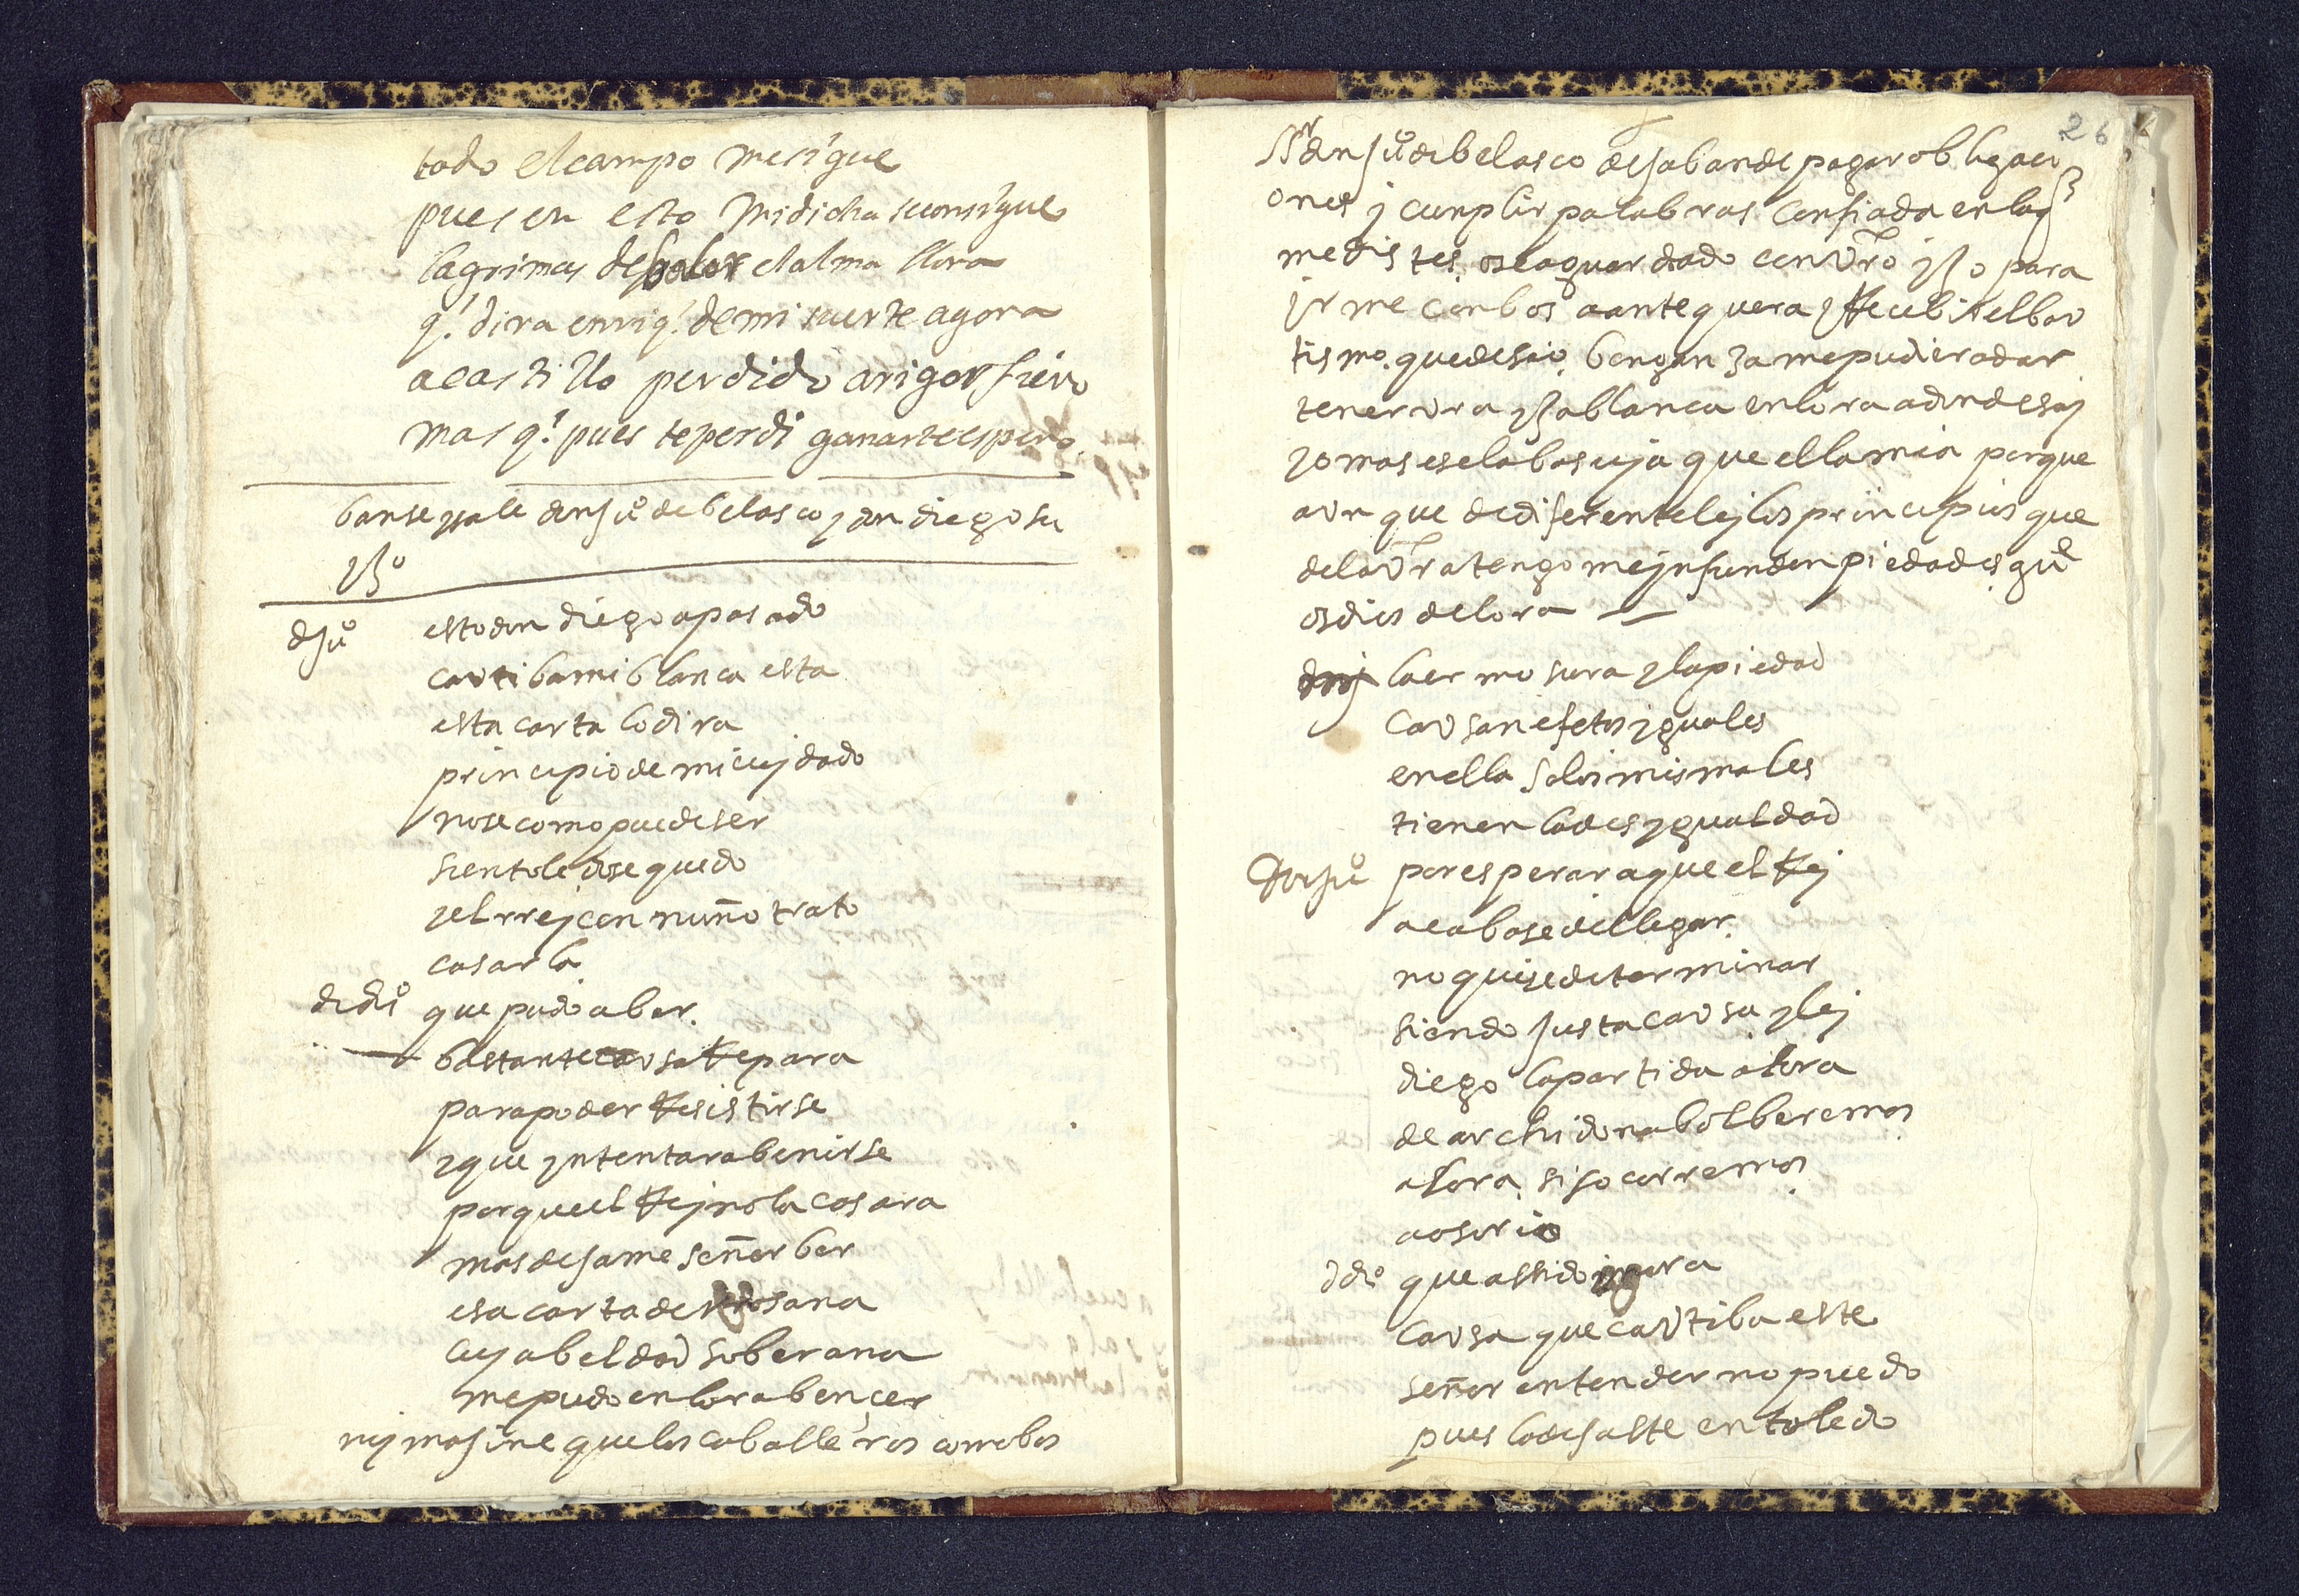 todo el campo mesigue
pues en esto midicha seconsigue
lagrimas de dolor el alma llora
q̃ dira enriq̃ de mi suerte agora
acastillo perdido arigor fiero
mas q̃ pues teperdi ganarte espero
banse ysale don juº debelasco y don diego su
yjº
djuº esto don diego apasado
cautiba mi blanca esta
esta carta lo dira
principio de mi cuydado
nose como puede ser
si en toledo se quedo
yel rrey con nuño trato
casarla
dediº que pudo aber
bastante causa Repara
para poder Resistirse
yque yntentara benirse
porque el Rey no la casara
mas dejame señor ber
esa carta de rrosana
cuya beldad soberana
me pudo en lora bençer
nymajine que los caballeros como bos
26
Sr don juº debelasco dejaban de pagar obligaci
ones y cunplir palabras confiada en la q̃
me distes os eaguardado con vrõ yjo para
yr me con bos aantequera y Recibir el bau
tismo que deseo bengança me pudiera dar
tener vra yja blanca en lora adonde soy
yo mas esclaba suya que ella mia porque
aun que de diferente ley los principios que
dela vrã tengo me ynfunden piedades gude
os dios de lora
laermosura y la piedad
causan efetos yguales
en ella solos mis males
tienen la desygualdad
Donjuº por esperar a que el Rey
acabase de llegar
no quise determinar
siendo justa causa y ley
diego la partida a lora
de archidona bolberemos
a lora si socorremos
a osorio
ddiº que assido
causa que cautiba este
señor entender no puedo
pues la dejaste en toledo